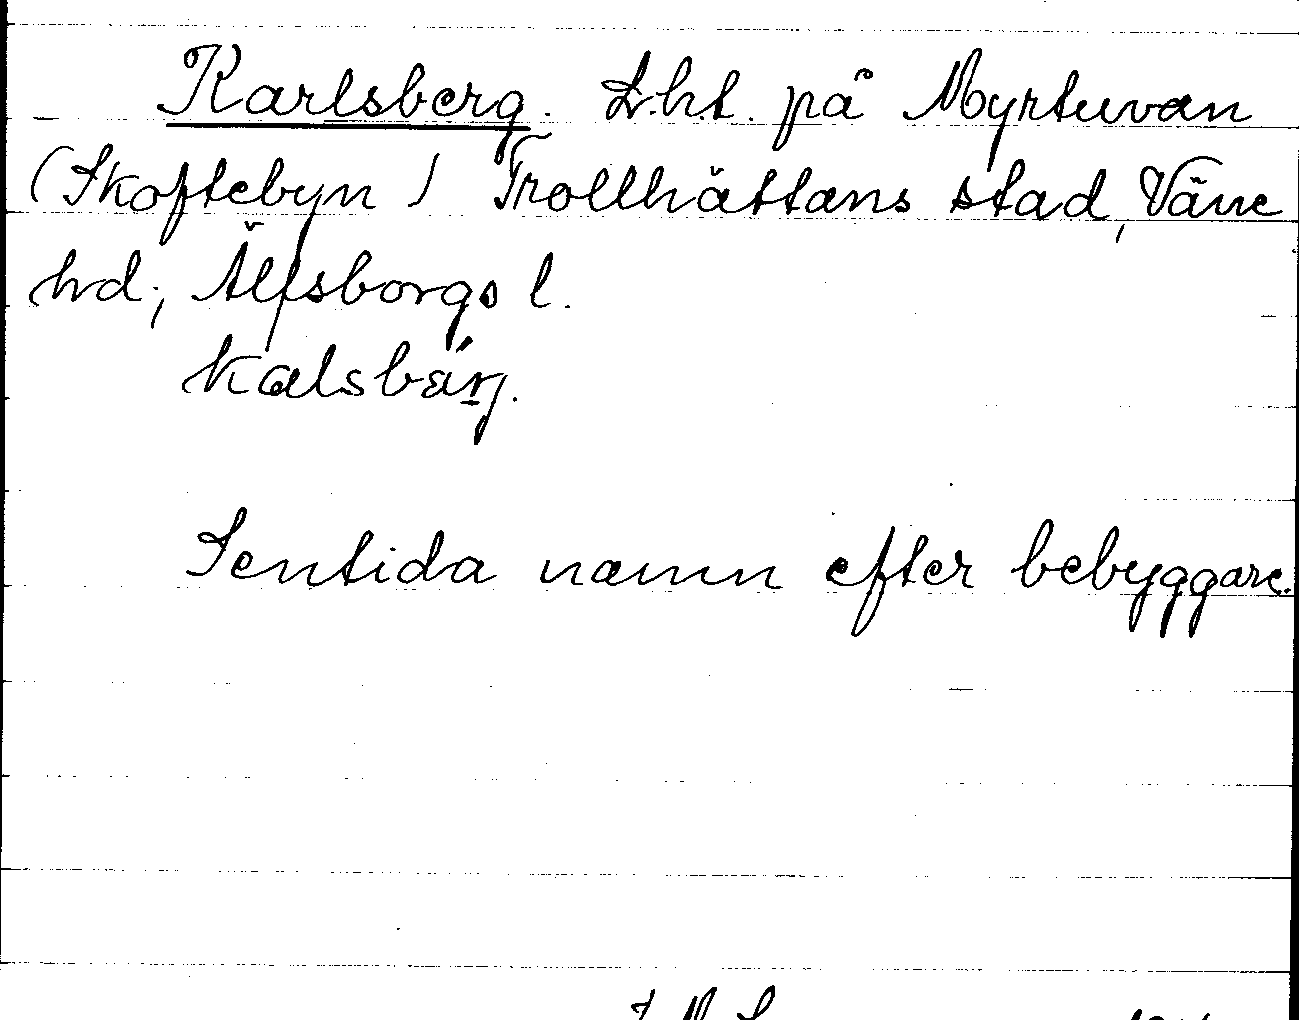 Karlsberg. Lht. på Myrtuvan
(Skoftebyn) Trollhättans stad, Väne
hd, Älfsborgs l.
kalsbärj.
Sentida namn efter bebyggare.